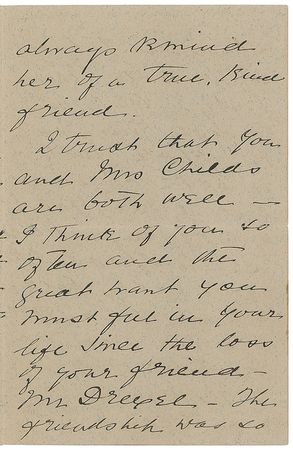 always remind
her of a true, kind
friend.
I trust that you
and Mrs Childs
are both well —
I think of you so
often and the
great want you
must feel in your
life since the loss
of your friend –
Mr Drexel – The
friendship was so